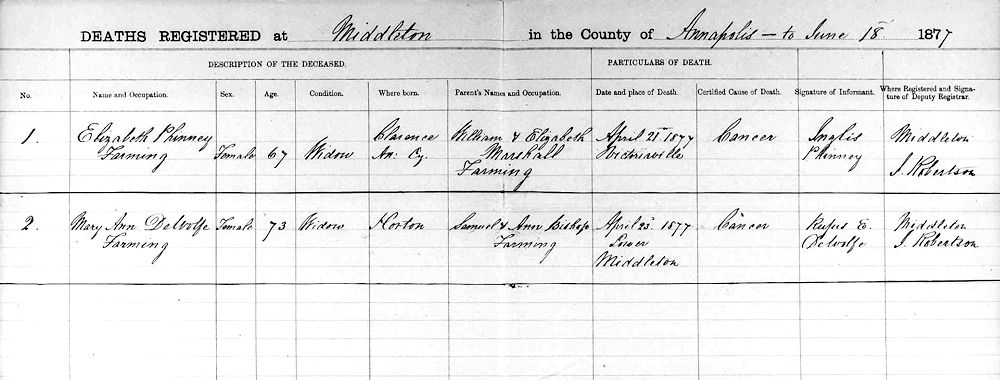 DEATHS REGISTERED at Middleton in the County of Annapolis - to June 18 1877
DESCRIPTION OF THE DECEASED. PARTICULARS OF DEATH.
No. Name and Occupation. Sex. Age. Condition. Where born. Parent's Names and Occupation. Date and place of Death. Certified Cause of Death. Signature of Informant. Where Registered and Signa-
ture of Deputy Registrar.
1. Elizabeth Phinney Female 67 Widow Clarence William & Elizabeth April 21 1877 Cancer Inglis Middleton
Farming An: Cy. Marshall Victoriaville Phinney
Farming J. Robertson
2. Mary Ann Delwolfe Female 73 Widow Horton Samuel & Ann Bishop April 23 1877 Cancer Rufus E. Middleton
Farming Farming Lower Delwolfe J. Robertson
Middleton